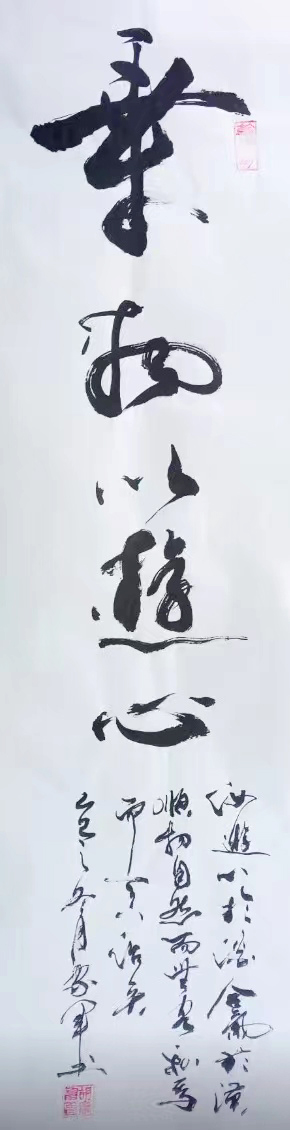 乘物以遊心
汝遊心於淡合氣於漠
順物自然而無容私焉
而天下治矣
乙巳之冬月家軍书